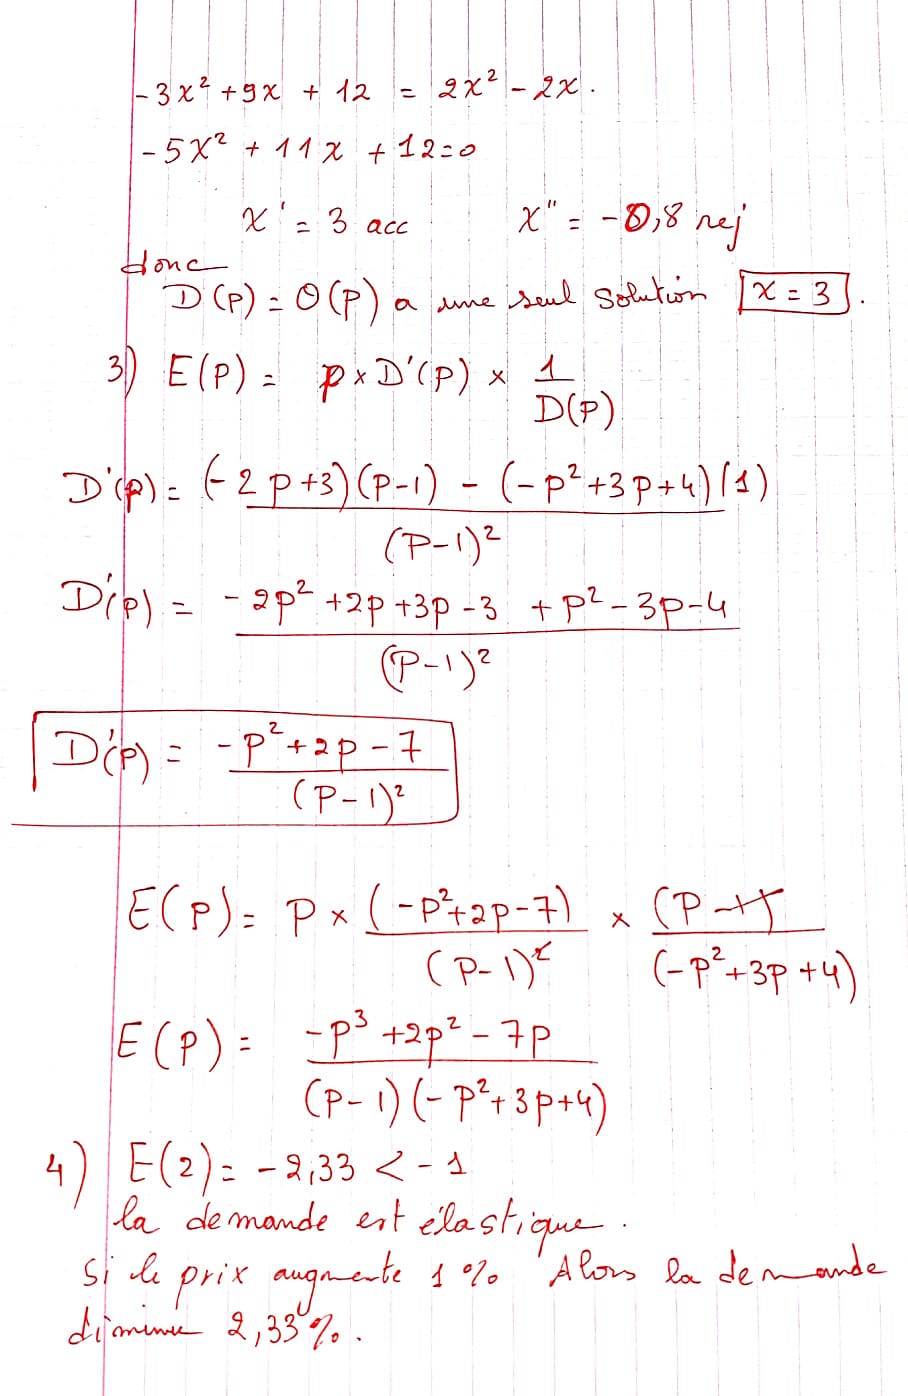 -3x² + 9x + 12 = 2x² - 2x.
-5x² + 11x + 12 = 0
x' = 3 acc x'' = -0,8 rej
donc
D(p) = O(p) a une seul solution x = 3.
3) E(p) = p x D'(p) x 1/D(p)
D'(p) = (-2p+3)(p-1) - (-p²+3p+4)(1) / (p-1)²
D'(p) = -2p² + 2p + 3p - 3 + p² - 3p - 4 / (p-1)²
D'(p) = -p² + 2p - 7 / (p-1)²
E(p) = p x (-p²+2p-7) / (p-1)² x (p-1) / (-p²+3p+4)
E(p) = -p³ + 2p² - 7p / (p-1)(-p²+3p+4)
4) E(2) = -2,33 < -1
la demande est élastique.
Si le prix augmente 1 % Alors la demande
diminue 2,33 %.